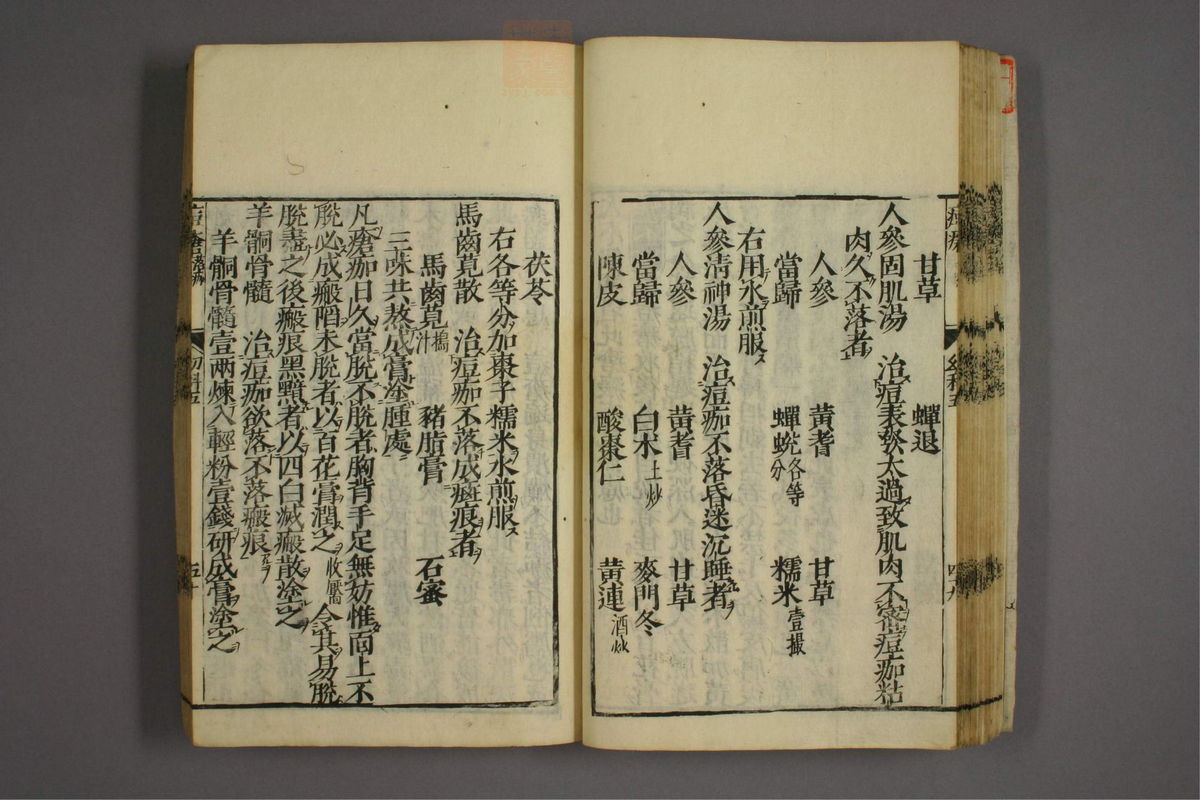 甘草 蟬退
人參固肌湯 治痘表發太過致肌肉不密痘痂粘
肉久不落者
人參 黃耆 甘草
當歸 蟬蛻各等分 糯米壹撮
右用水煎服
人參清神湯 治痘痂不落昏迷沉睡者
人參 黃耆 甘草
當歸 白朮土炒 麥門冬
陳皮 酸棗仁 黃連酒炒
茯苓
右各等分加棗子糯米水煎服
馬齒莧散 治痘痂不落成瘢痕者
馬齒莧搗汁 豬脂膏 石蜜
三味共熬成膏塗腫處
凡瘡痂日久當脫不脫者胸背手足無妨惟面上不
脫必成瘢陷未脫者以百花膏潤之收靨令其易脫
脫盡之後瘢痕黑黯者以四白滅瘢散塗之
羊䯊骨髓 治痘痂欲落不落瘢痕
羊䯊骨髓壹兩煉入輕粉壹錢研成膏塗之